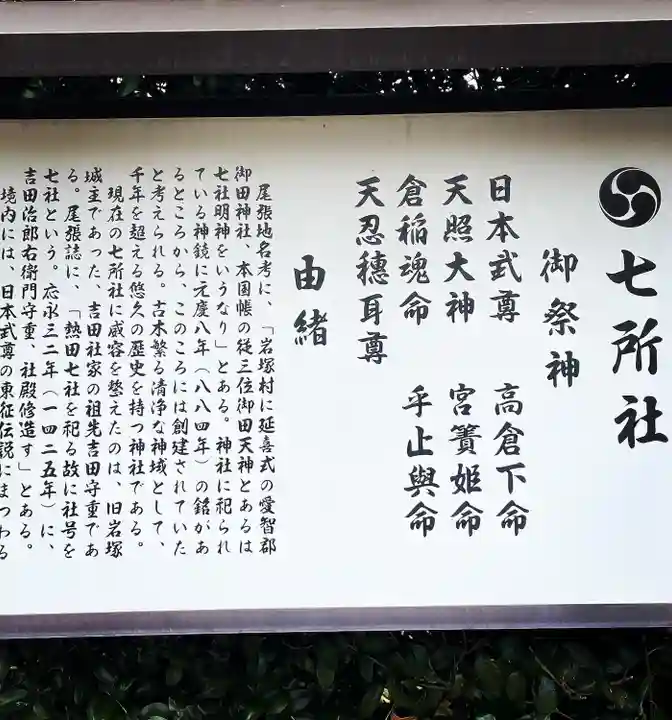 七所社
御祭神
日本武尊 高倉下命
天照大神 宮簀姫命
倉稲魂命 乎止與命
天忍穗耳尊
由緒
尾張地名考に、「岩塚村に延喜式の愛智郡
御田神社、本国帳の従三位御田天神とあるは
七社明神をいうなり」とある。神社に祀られ
ている神鏡に元慶八年(八八四年)の銘があ
るところから、このころには創建されていた
と考えられる。古木繁る清浄な神域として、
千年を超える悠久の歴史を持つ神社である。
現在の七所社に威容を整えたのは、旧岩塚
城主であった、吉田社家の祖先吉田守重であ
る。尾張誌に、「熱田七社を祀る故に社号を
七社という。応永三二年(一四二五年)に、
吉田治郎右衛門守重、社殿修造す」とある。
境内には、日本武尊の東征伝説にまつわる